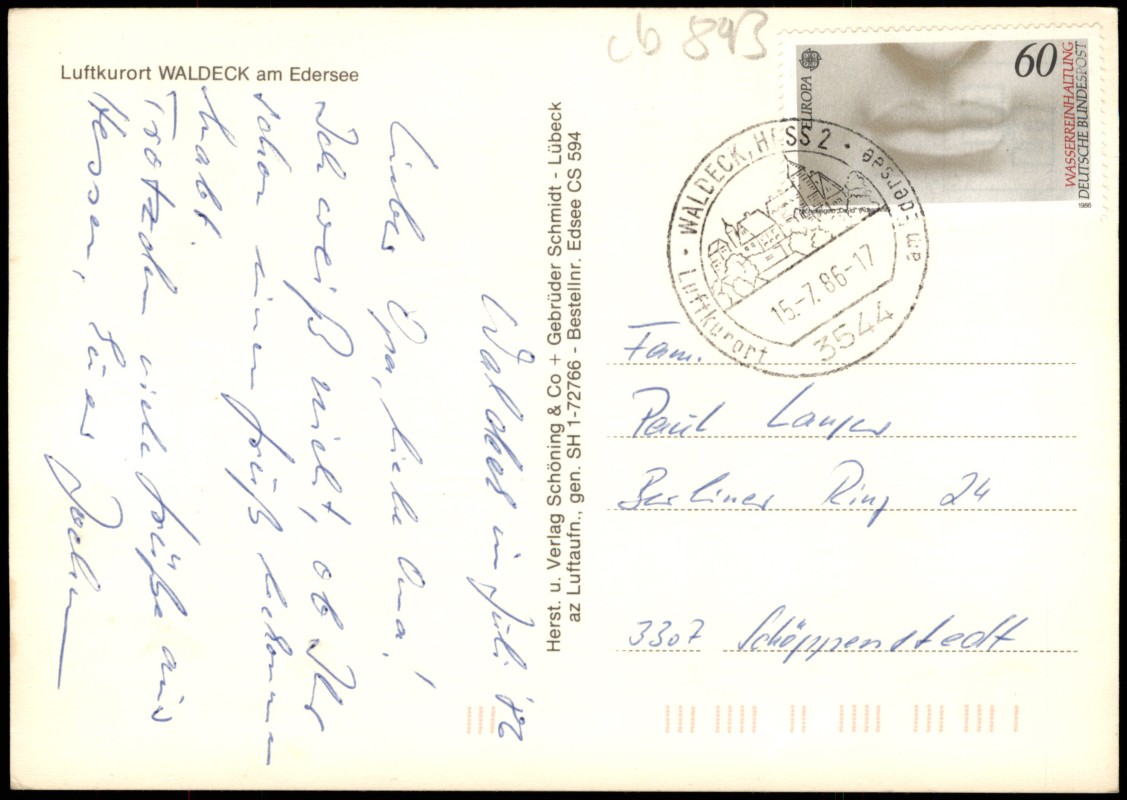 Luftkurort WALDECK am Edersee
Waldeck im Juli '86
Lieber Opa, liebe Oma,
Ich weiß nicht, ob Ihr
schon einen Gruß bekommen
habt.
Trotzdem viele Grüße aus
Hessen, Euer Jochen
Herst. u. Verlag Schöning & Co + Gebrüder Schmidt - Lübeck
az Luftaufn., gen. SH 1-72766 - Bestellnr. Edsee CS 594
cb 893
60
EUROPA
WASSERREINHALTUNG
DEUTSCHE BUNDESPOST
1986
Luftkurort · WALDECK, HESS 2 · am Edersee
15.-7.86-17
3544
Fam.
Paul Langer
Berliner Ring 24
3307 Schöppenstedt